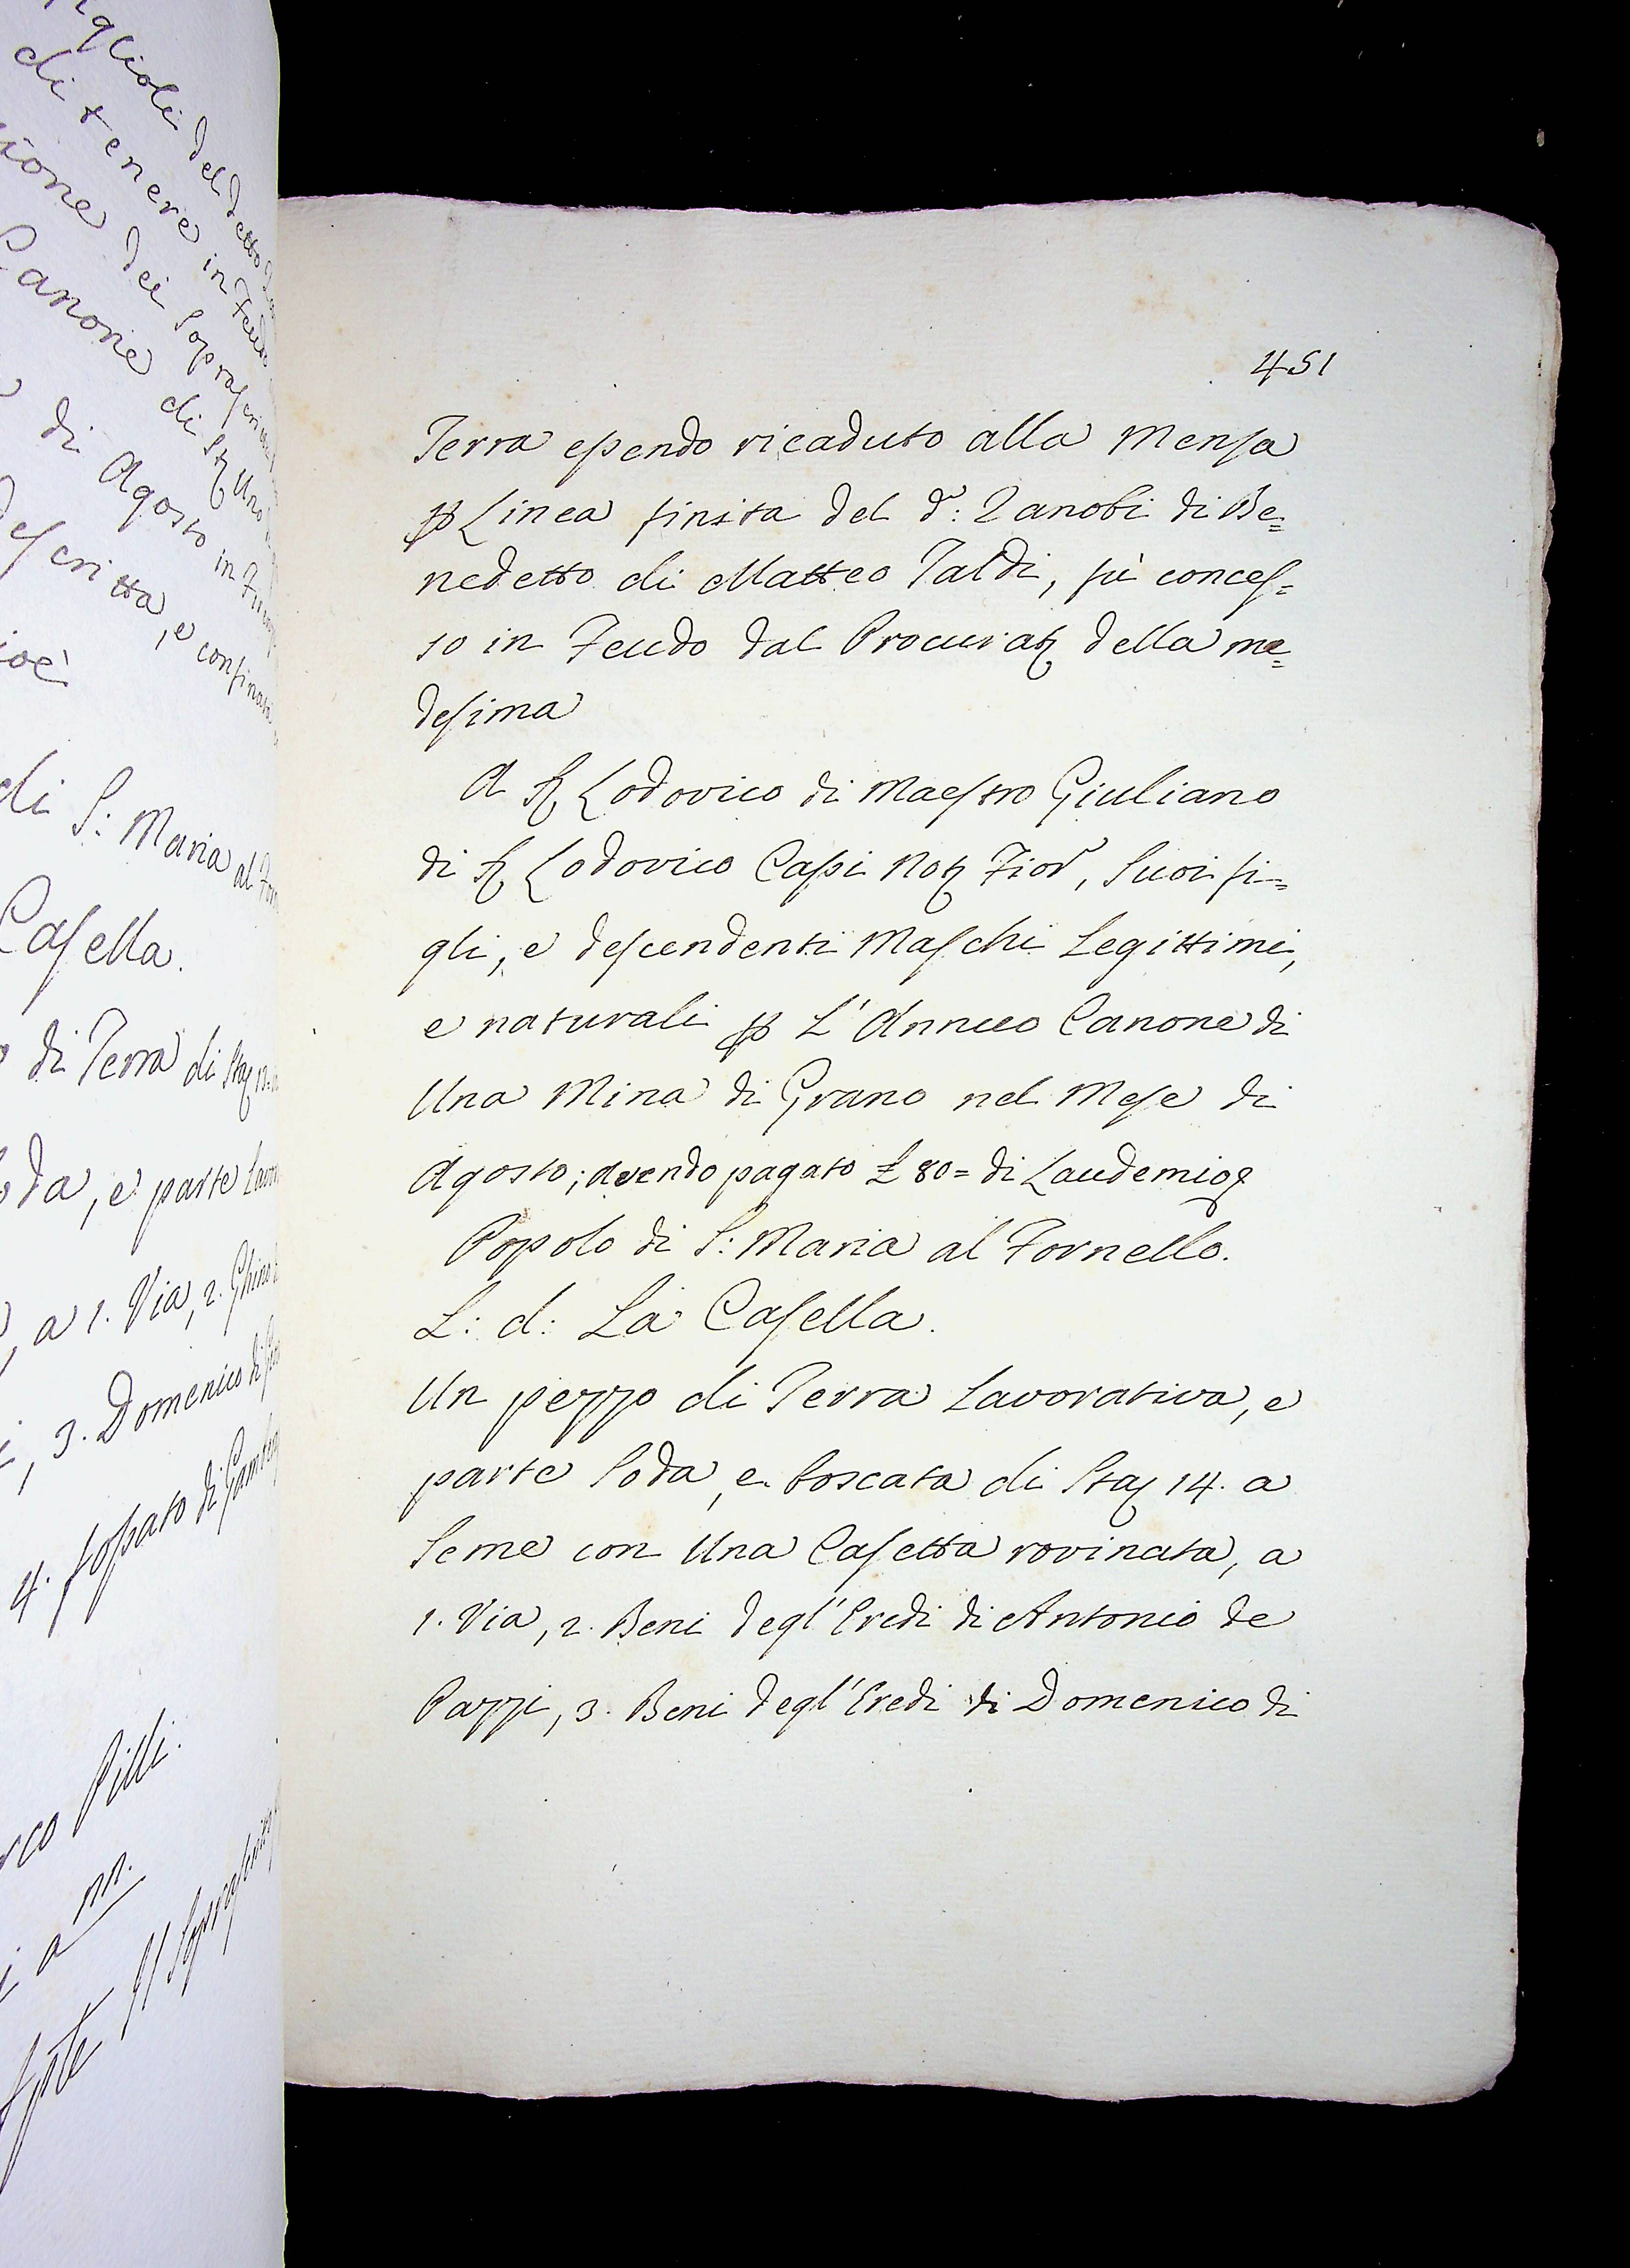 iglioli del detto
di tenere in Feudo
zione dei Soprascri
Canone di
di Agosto in
descritta, e confinata
ioè
di S: Maria al For
Casella.
di Terra di Sta
oda, e parte Lavor
, a 1. Via, 2. Ghino
i, 3. Domenico di
4. fossato di
rco Pilli.
451
Terra essendo ricaduto alla Mensa
p Linea finita del d.: Zanobi di Be=
nedetto di Matteo Taldi, fù conces=
so in Feudo dal Procurat della me=
desima
A S Lodovico di Maestro Giuliano
di S Lodovico Cassi Not Fior, Suoi fi=
gli, e descendenti Maschi Legittimi,
e naturali p L'Annuo Canone di
Una Mina di Grano nel Mese di
Agosto; avendo pagato £ 80= di Laudemio
Popolo di S: Maria al Fornello.
L: d: La Casella.
Un pezzo di Terra Lavorativa, e
parte Soda, e boscata di Sta 14. a
Seme con Una Casetta rovinata, a
1. Via, 2. Beni degl'Eredi di Antonio de
Pazzi, 3. Beni degl'Eredi di Domenico di